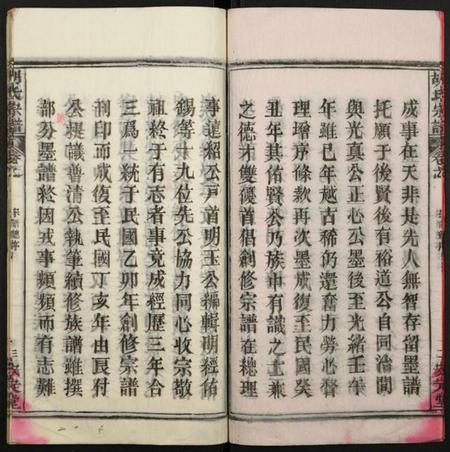 胡氏宗譜
成事在天非是先人無智存留墨譜
托願于後賢後有裕道公自同治間
與光真公正心公墨後至光緒壬午
年雖已年越古稀仍還奮力勞心督
理增序條款再次墨成復至民國癸
丑年其侑賢公乃族中有識之士兼
之德才雙優首倡創修宗譜在總理
事蓮紹公戶首明玉公編輯明經佑
錫等十九位先公協力同心收宗敬
祖終于有志者事竟成經歷三年合
三為一統于民國乙卯年創修宗譜
刊印而成復至民國丁亥年由辰付
公提議曾清公執筆續修族譜雖撰
部分墨譜終因戎事頻頻而有志難
胡氏宗譜
卷之
三